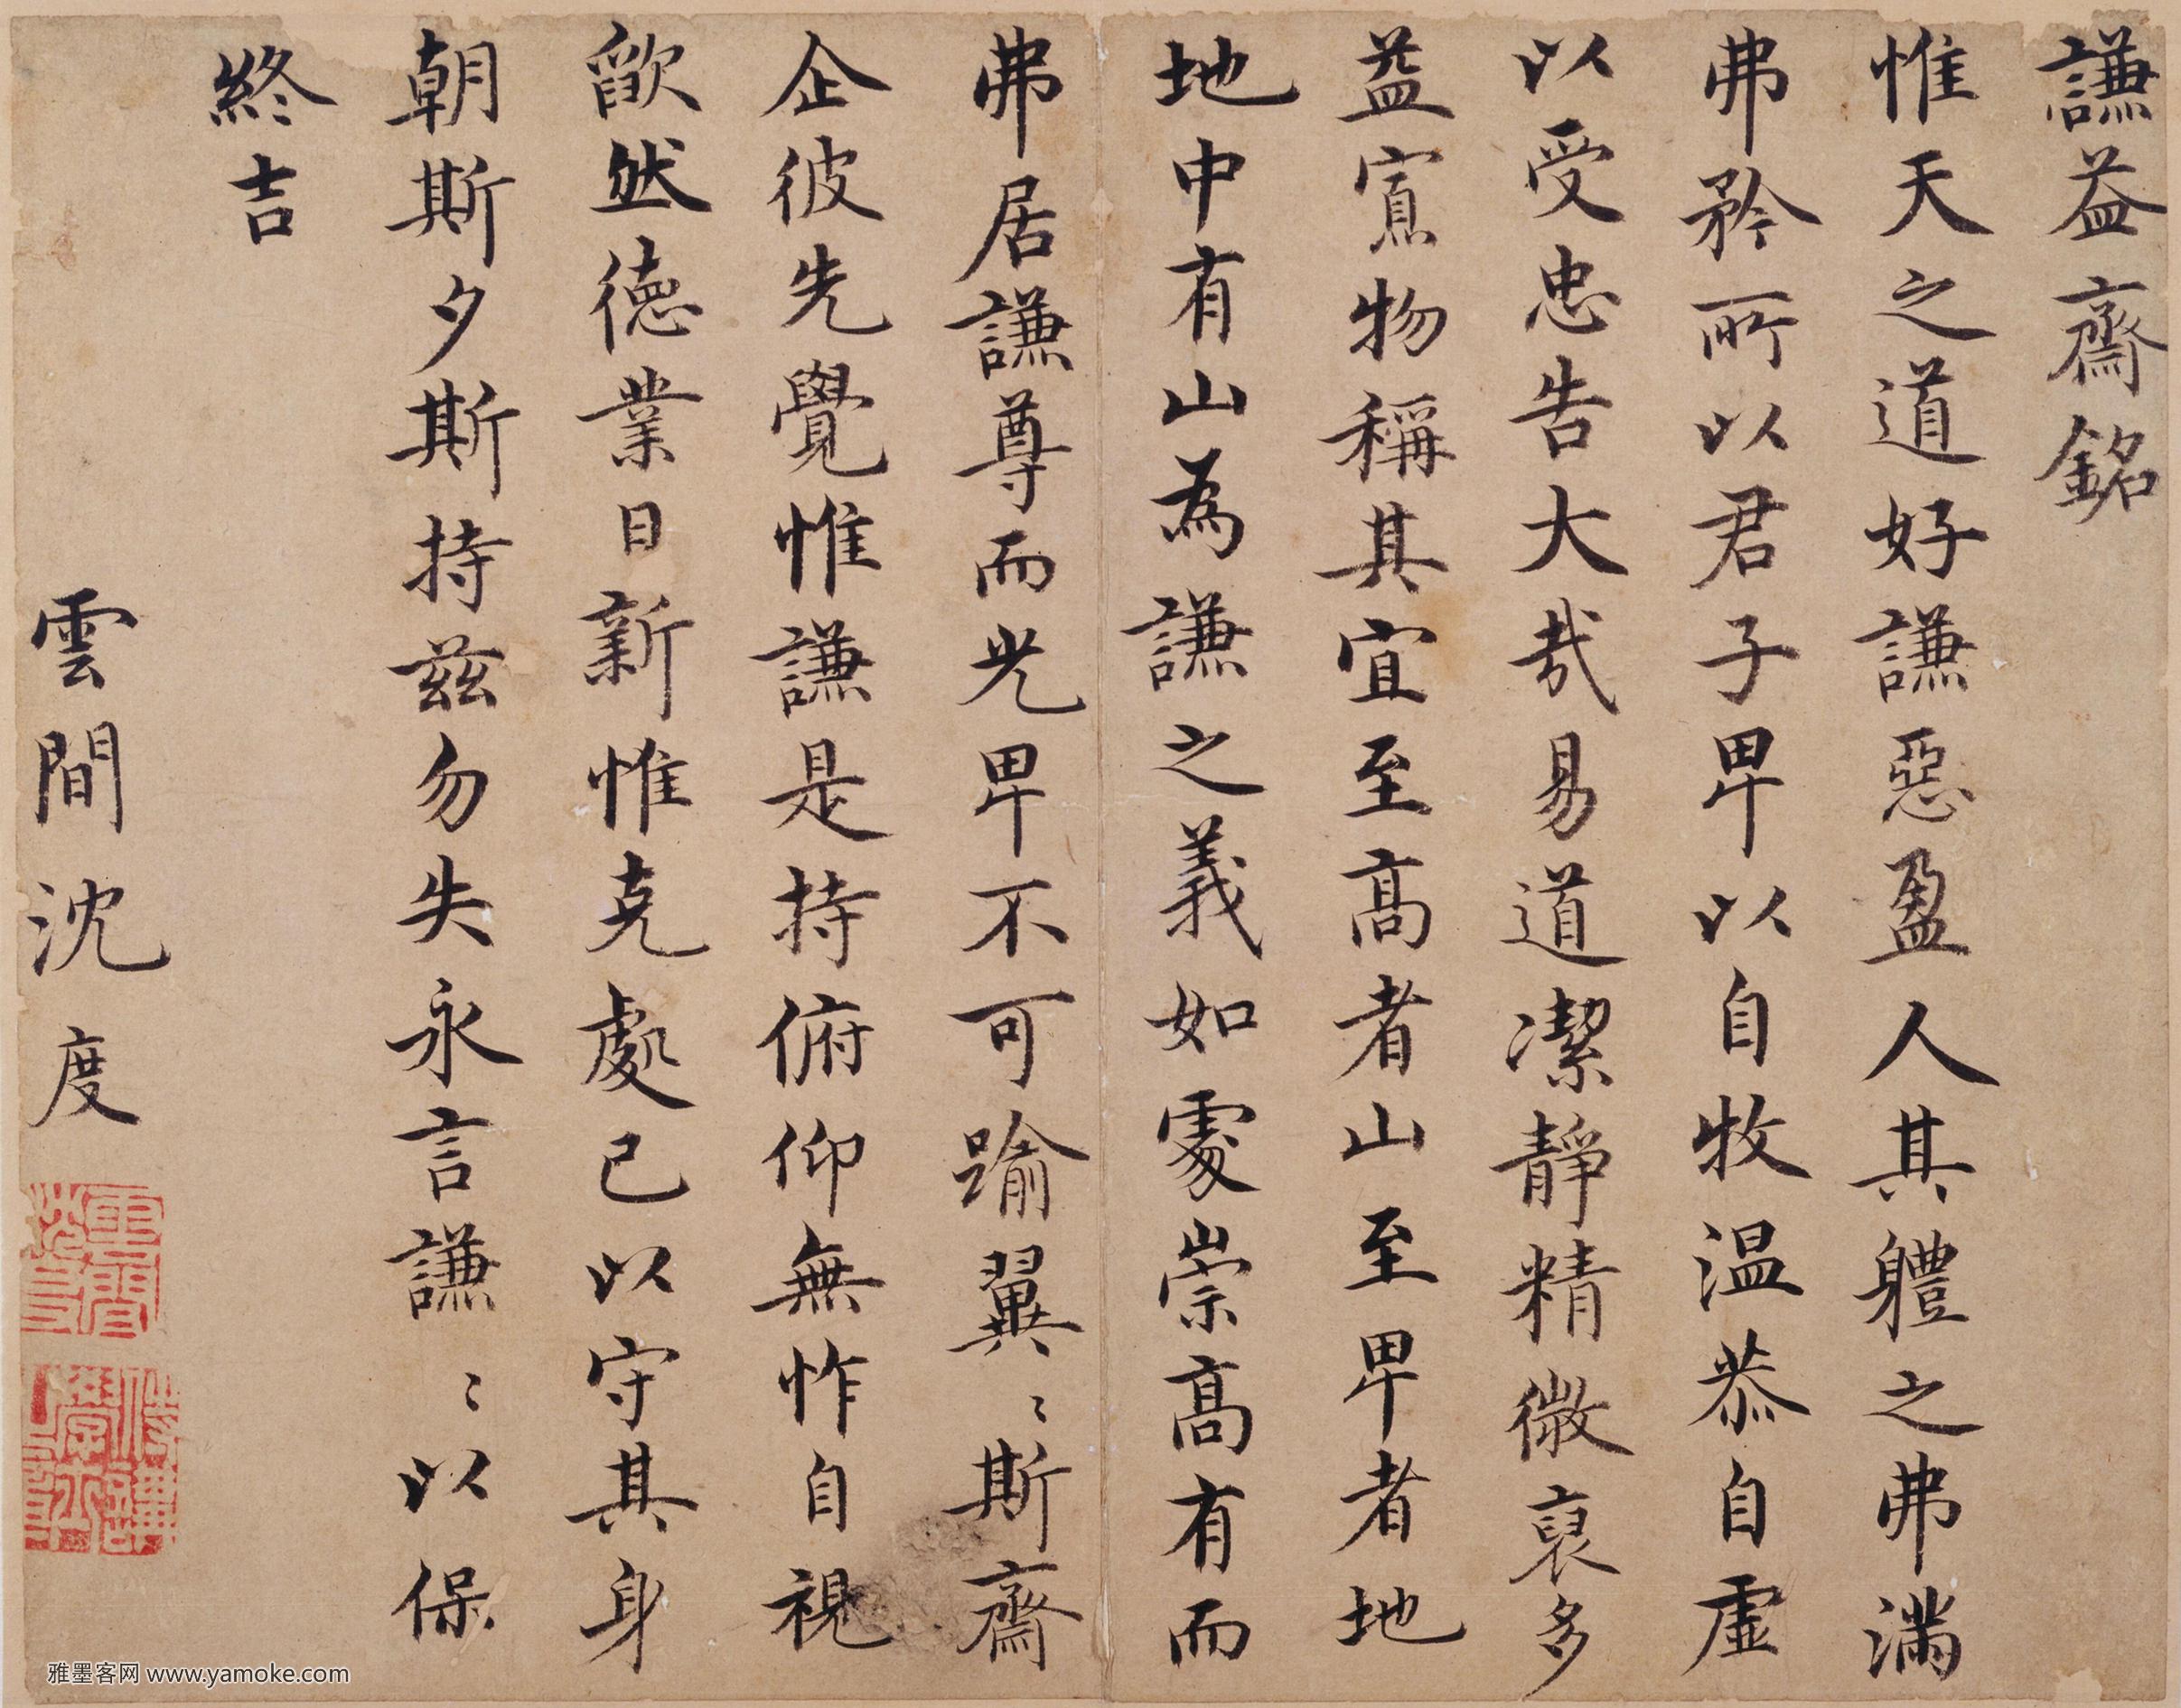 謙益齋銘
惟天之道好謙惡盈人其軆之弗滿
弗矜所以君子卑以自牧温恭自虛
以受忠告大哉易道潔靜精微裒多
益寡物稱其宜至髙者山至卑者地
地中有山為謙之義如䖏崇髙有而
弗居謙尊而光卑不可踰翼〻斯齋
企彼先覺惟謙是持俯仰無怍自視
歉然德業日新惟克處己以守其身
朝斯夕斯持兹勿失永言謙〻以保
終吉
雲間沈度
雅墨客网 www.yamoke.com